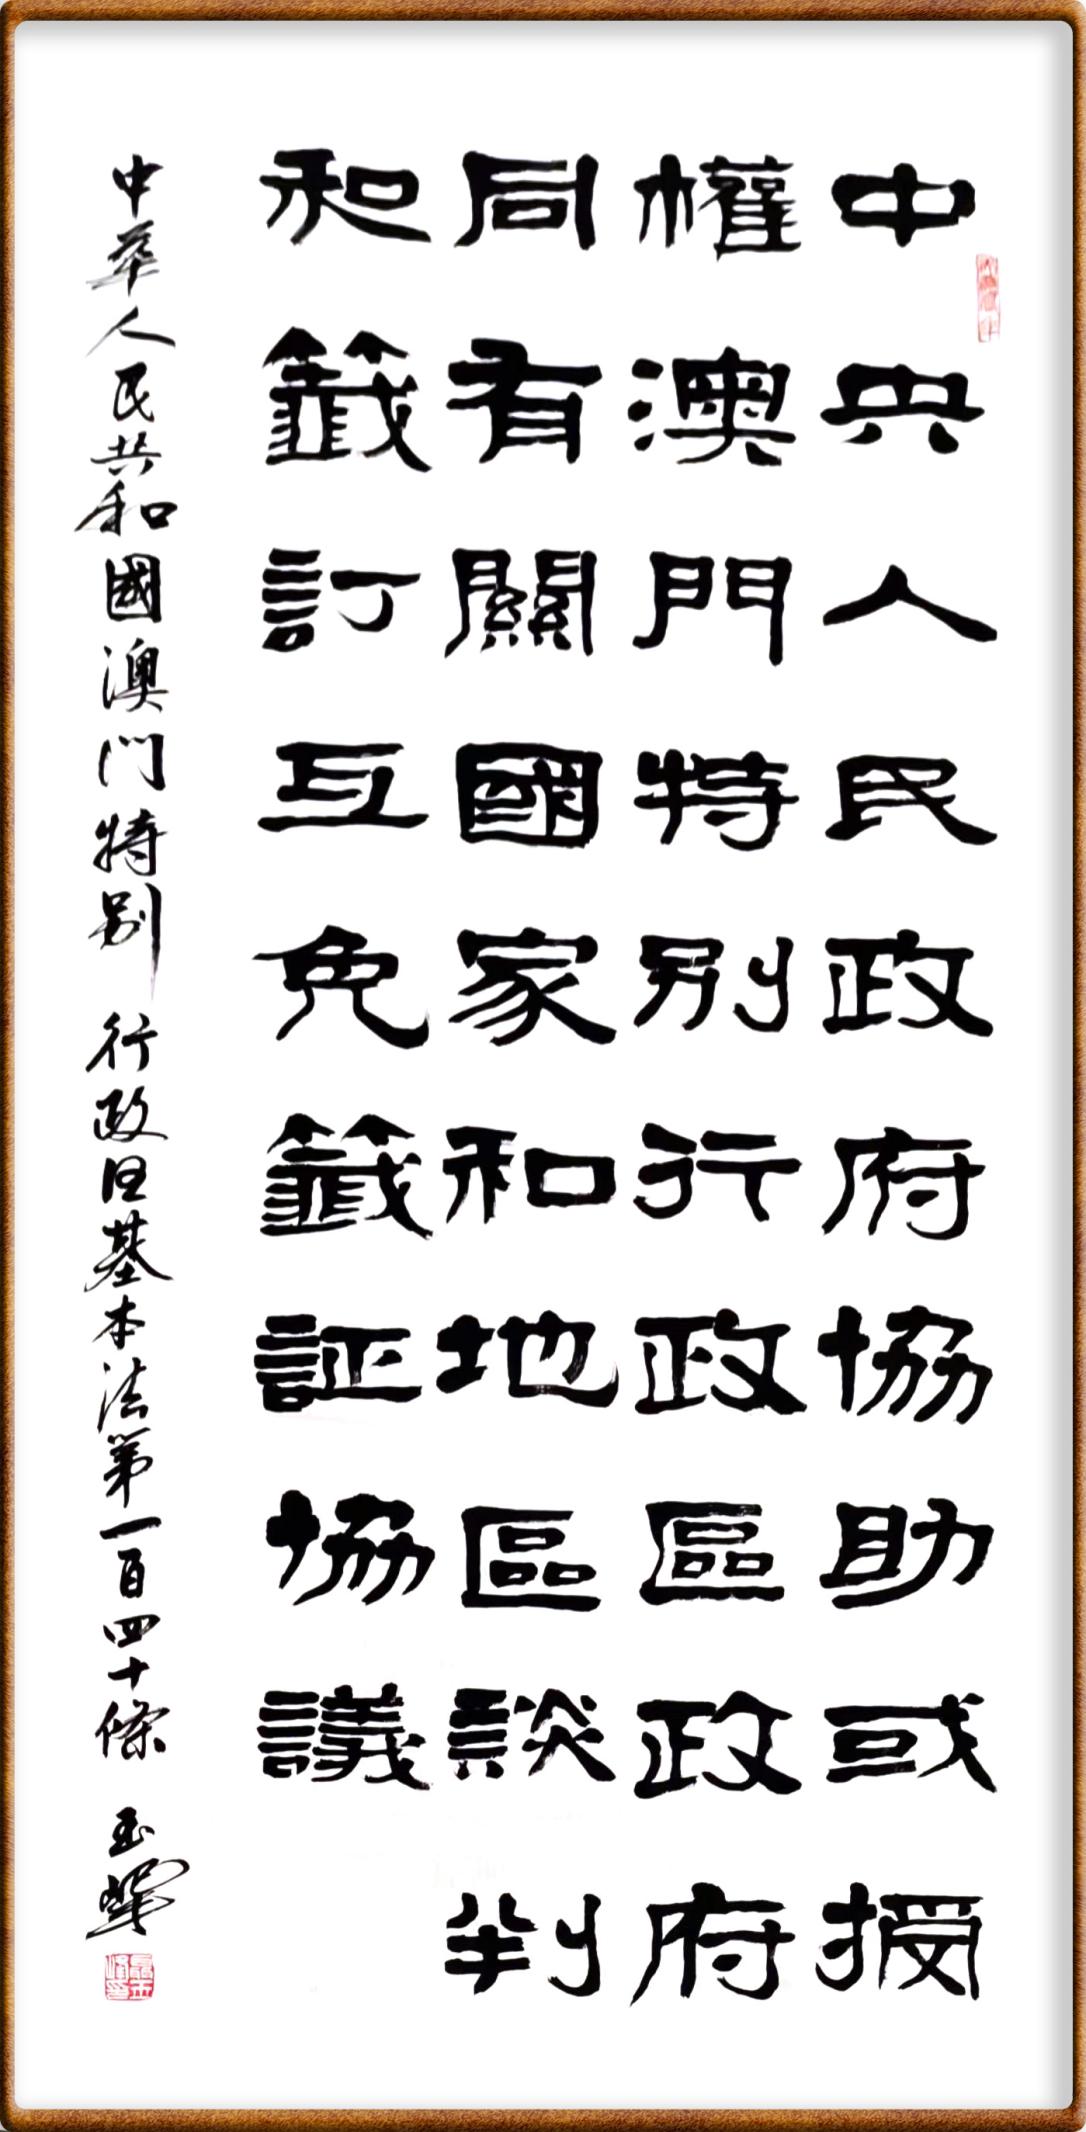 中央人民政府協助或授
權澳門特別行政區政府
同有關國家和地區談判
和籤訂互免籤証協議
中華人民共和國澳門特別行政区基本法第一百四十條 玉